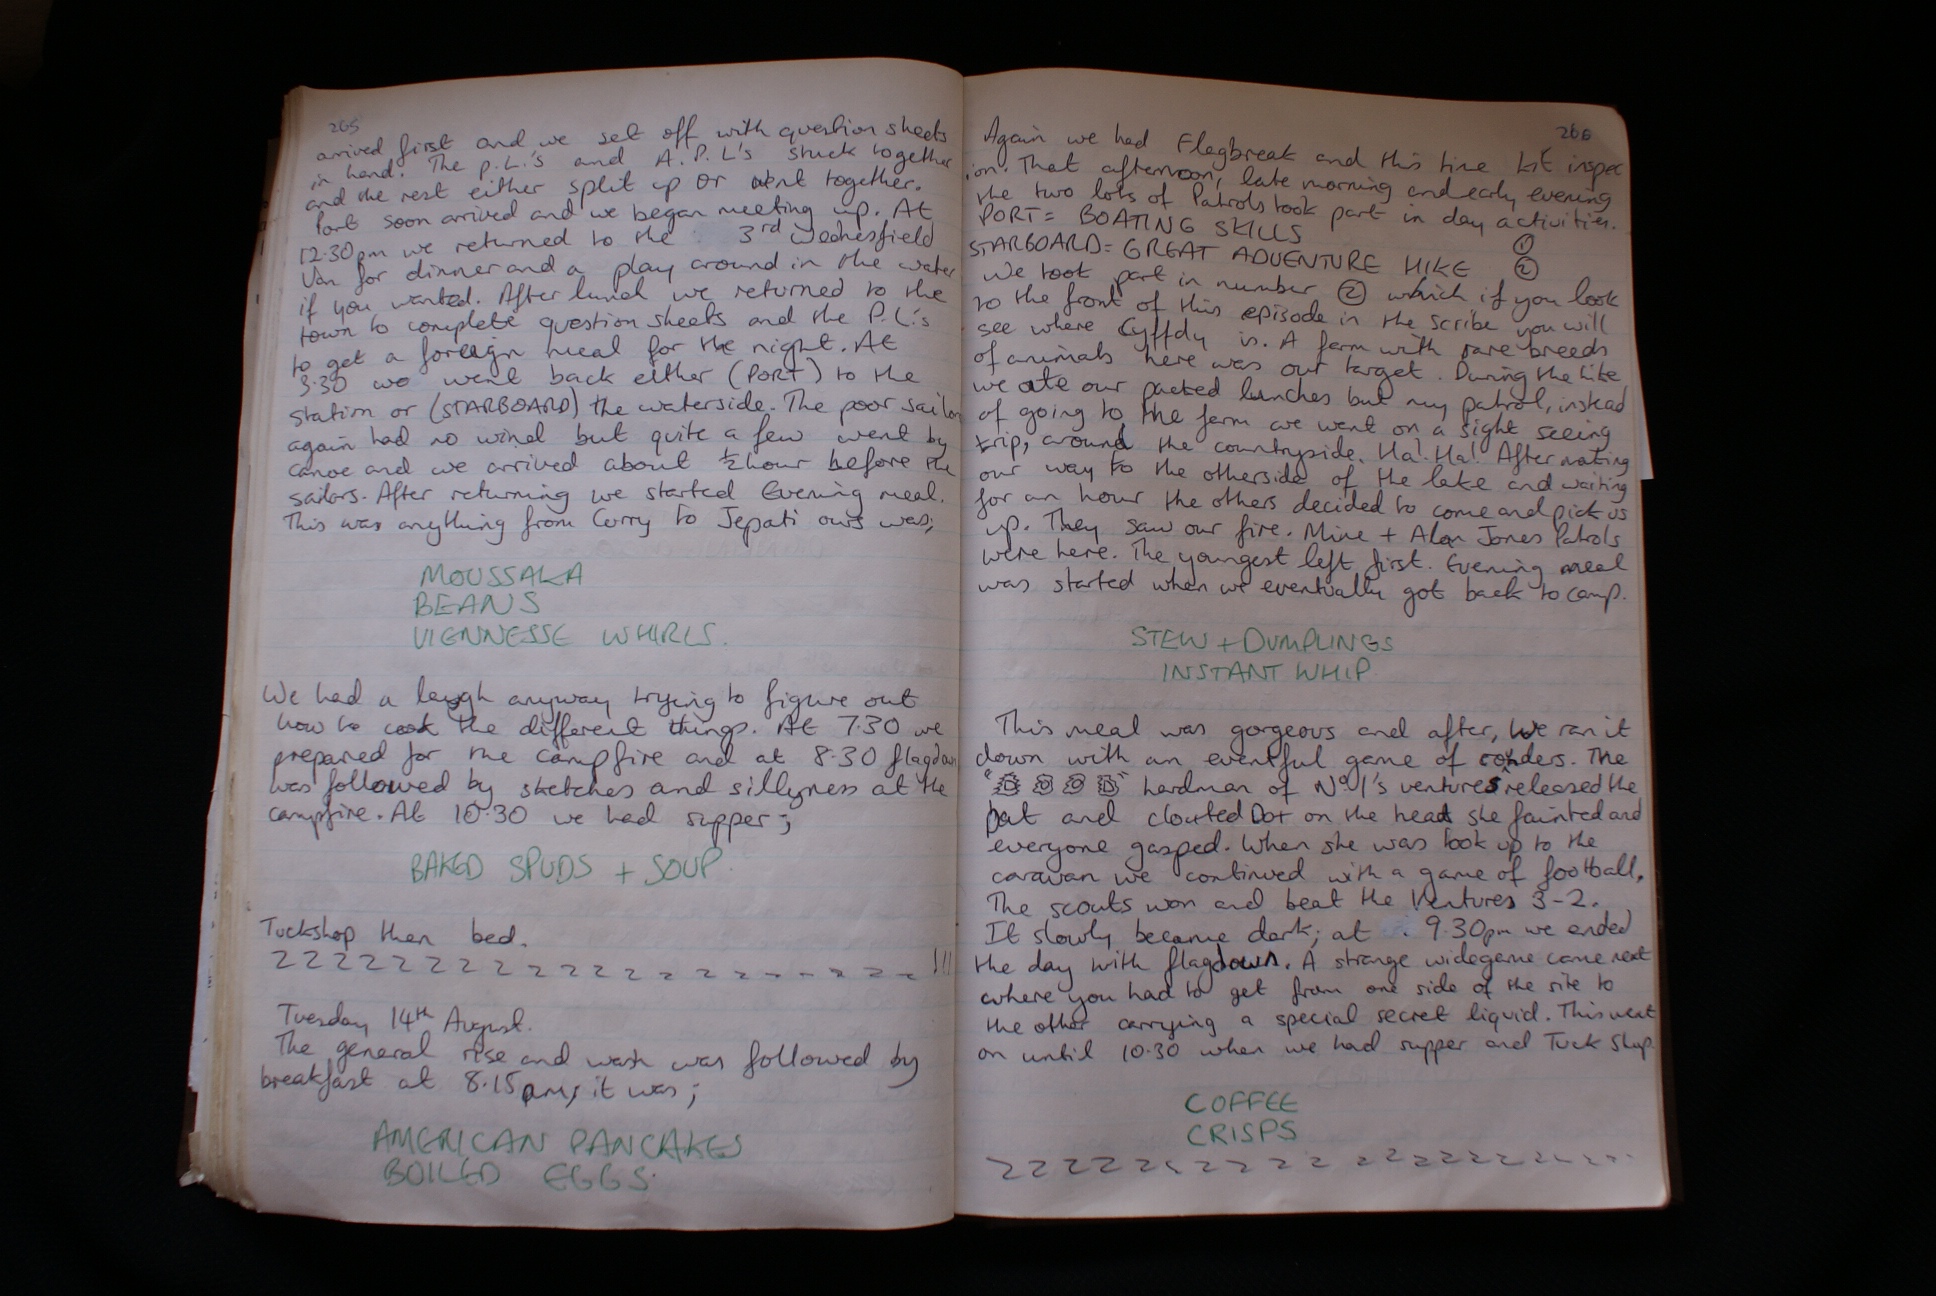 265
arrived first and we set off with question sheets
in hand. The P.L.'s and A.P.L's stuck together
and the rest either split up or went together.
Port soon arrived and we began meeting up. At
12.30pm we returned to the 3rd Wednesfield
Van for dinner and a play around in the water
if you wanted. After lunch we returned to the
town to complete question sheets and the P.L.'s
to get a foreign meal for the night. At
3.30 we went back either (PORT) to the
station or (STARBOARD) the waterside. The poor sailors
again had no wind but quite a few went by
canoe and we arrived about ½ hour before the
sailors. After returning we started Evening meal.
This was anything from Curry to Jepati ours was;
MOUSSAKA
BEANS
VIENNESSE WHIRLS.
We had a laugh anyway trying to figure out
how to cook the different things. At 7.30 we
prepared for the campfire and at 8.30 flagdown
was followed by sketches and sillyness at the
campfire. At 10.30 we had supper;
BAKED SPUDS + SOUP.
Tuckshop then bed.
ZZZZZZZZZZZZZZZZZZZZ!!!
Tuesday 14th August.
The general rise and wash was followed by
breakfast at 8.15am, it was;
AMERICAN PANCAKES
BOILED EGGS.
266
Again we had Flagbreak and this time kit inspec
ion. That afternoon, late morning and early evening
the two lots of Patrols took part in day activities.
PORT = BOATING SKILLS ①
STARBOARD = GREAT ADVENTURE HIKE ②
We took part in number ② which if you look
to the front of this episode in the scribe you will
see where Cyffdy is. A farm with rare breeds
of animals here was our target. During the hike
we ate our packed lunches but my patrol, instead
of going to the farm we went on a sight seeing
trip, around the countryside. Ha! Ha! After making
our way to the otherside of the lake and waiting
for an hour the others decided to come and pick us
up. They saw our fire. Mine + Alan Jones Patrols
were here. The youngest left first. Evening meal
was started when we eventually got back to camp.
STEW + DUMPLINGS
INSTANT WHIP
This meal was gorgeous and after, we ran it
down with an eventful game of rounders. The
" " hardman of No 1's ventures released the
bat and clouted Dot on the head she fainted and
everyone gasped. When she was took up to the
caravan we continued with a game of football.
The scouts won and beat the Ventures 3-2.
It slowly became dark; at 9.30pm we ended
the day with flagdown. A strange widegame came next
where you had to get from one side of the site to
the other carrying a special secret liquid. This went
on until 10.30 when we had supper and Tuck Shop
COFFEE
CRISPS
ZZZZZZZZZZZZZZZZZZZ...